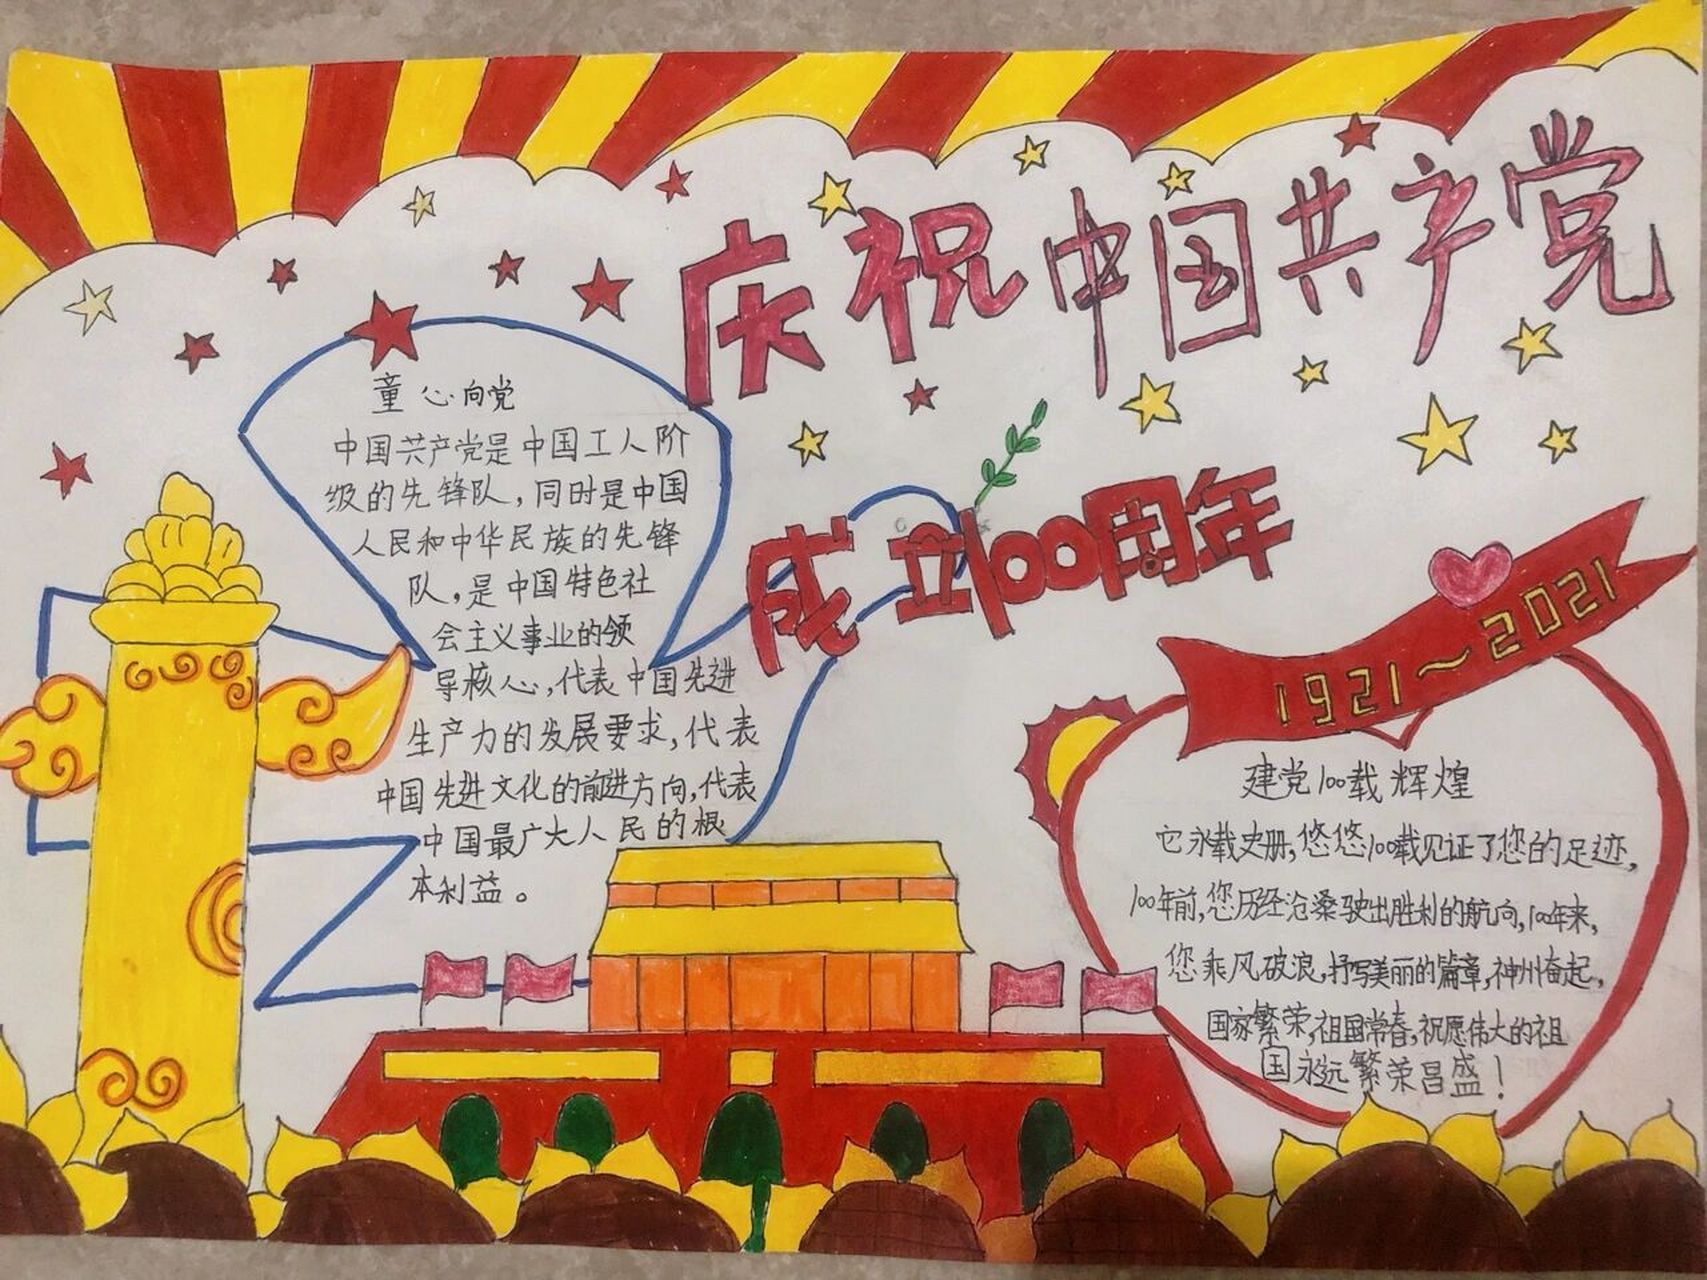 庆祝中国共产党
成立100周年
童心向党
中国共产党是中国工人阶
级的先锋队，同时是中国
人民和中华民族的先锋
队，是中国特色社
会主义事业的领
导核心，代表中国先进
生产力的发展要求，代表
中国先进文化的前进方向，代表
中国最广大人民的根
本利益。
1921～2021
建党100载辉煌
它永载史册，悠悠100载见证了您的足迹，
100年前，您历经沧桑驶出胜利的航向，100年来，
您乘风破浪，抒写美丽的篇章，神州奋起，
国家繁荣，祖国常春，祝愿伟大的祖
国永远繁荣昌盛！